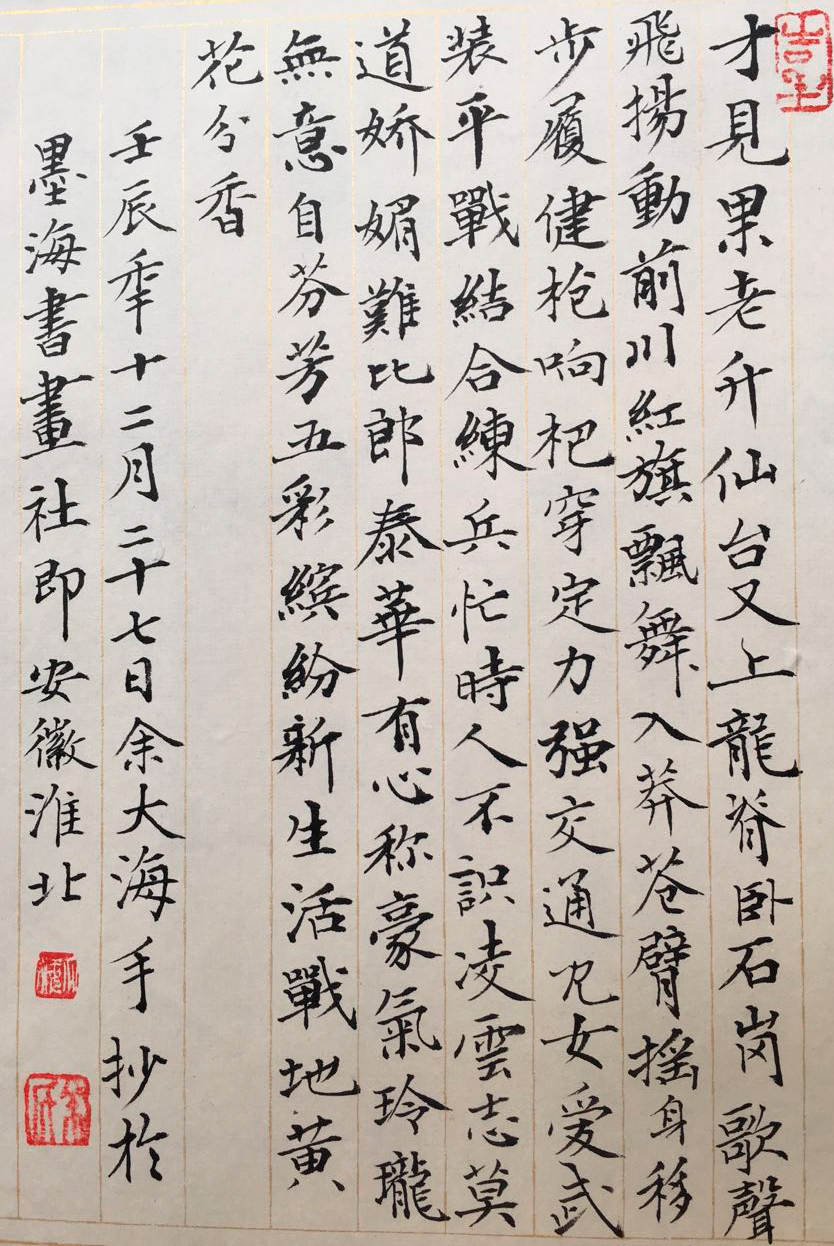 才見果老升仙台又上龍脊卧石崗歌聲
飛揚動前川紅旗飄舞入莽苍臂摇身移
步履健枪响杷穿定力强交通児女爱武
装平戰結合練兵忙時人不識凌雲志莫
道娇媚難比郎泰華有心称豪氣玲瓏
無意自芬芳五彩缤紛新生活戰地黄
花分香
壬辰年十二月二十七日余大海手抄於
墨海書畫社即安徽淮北